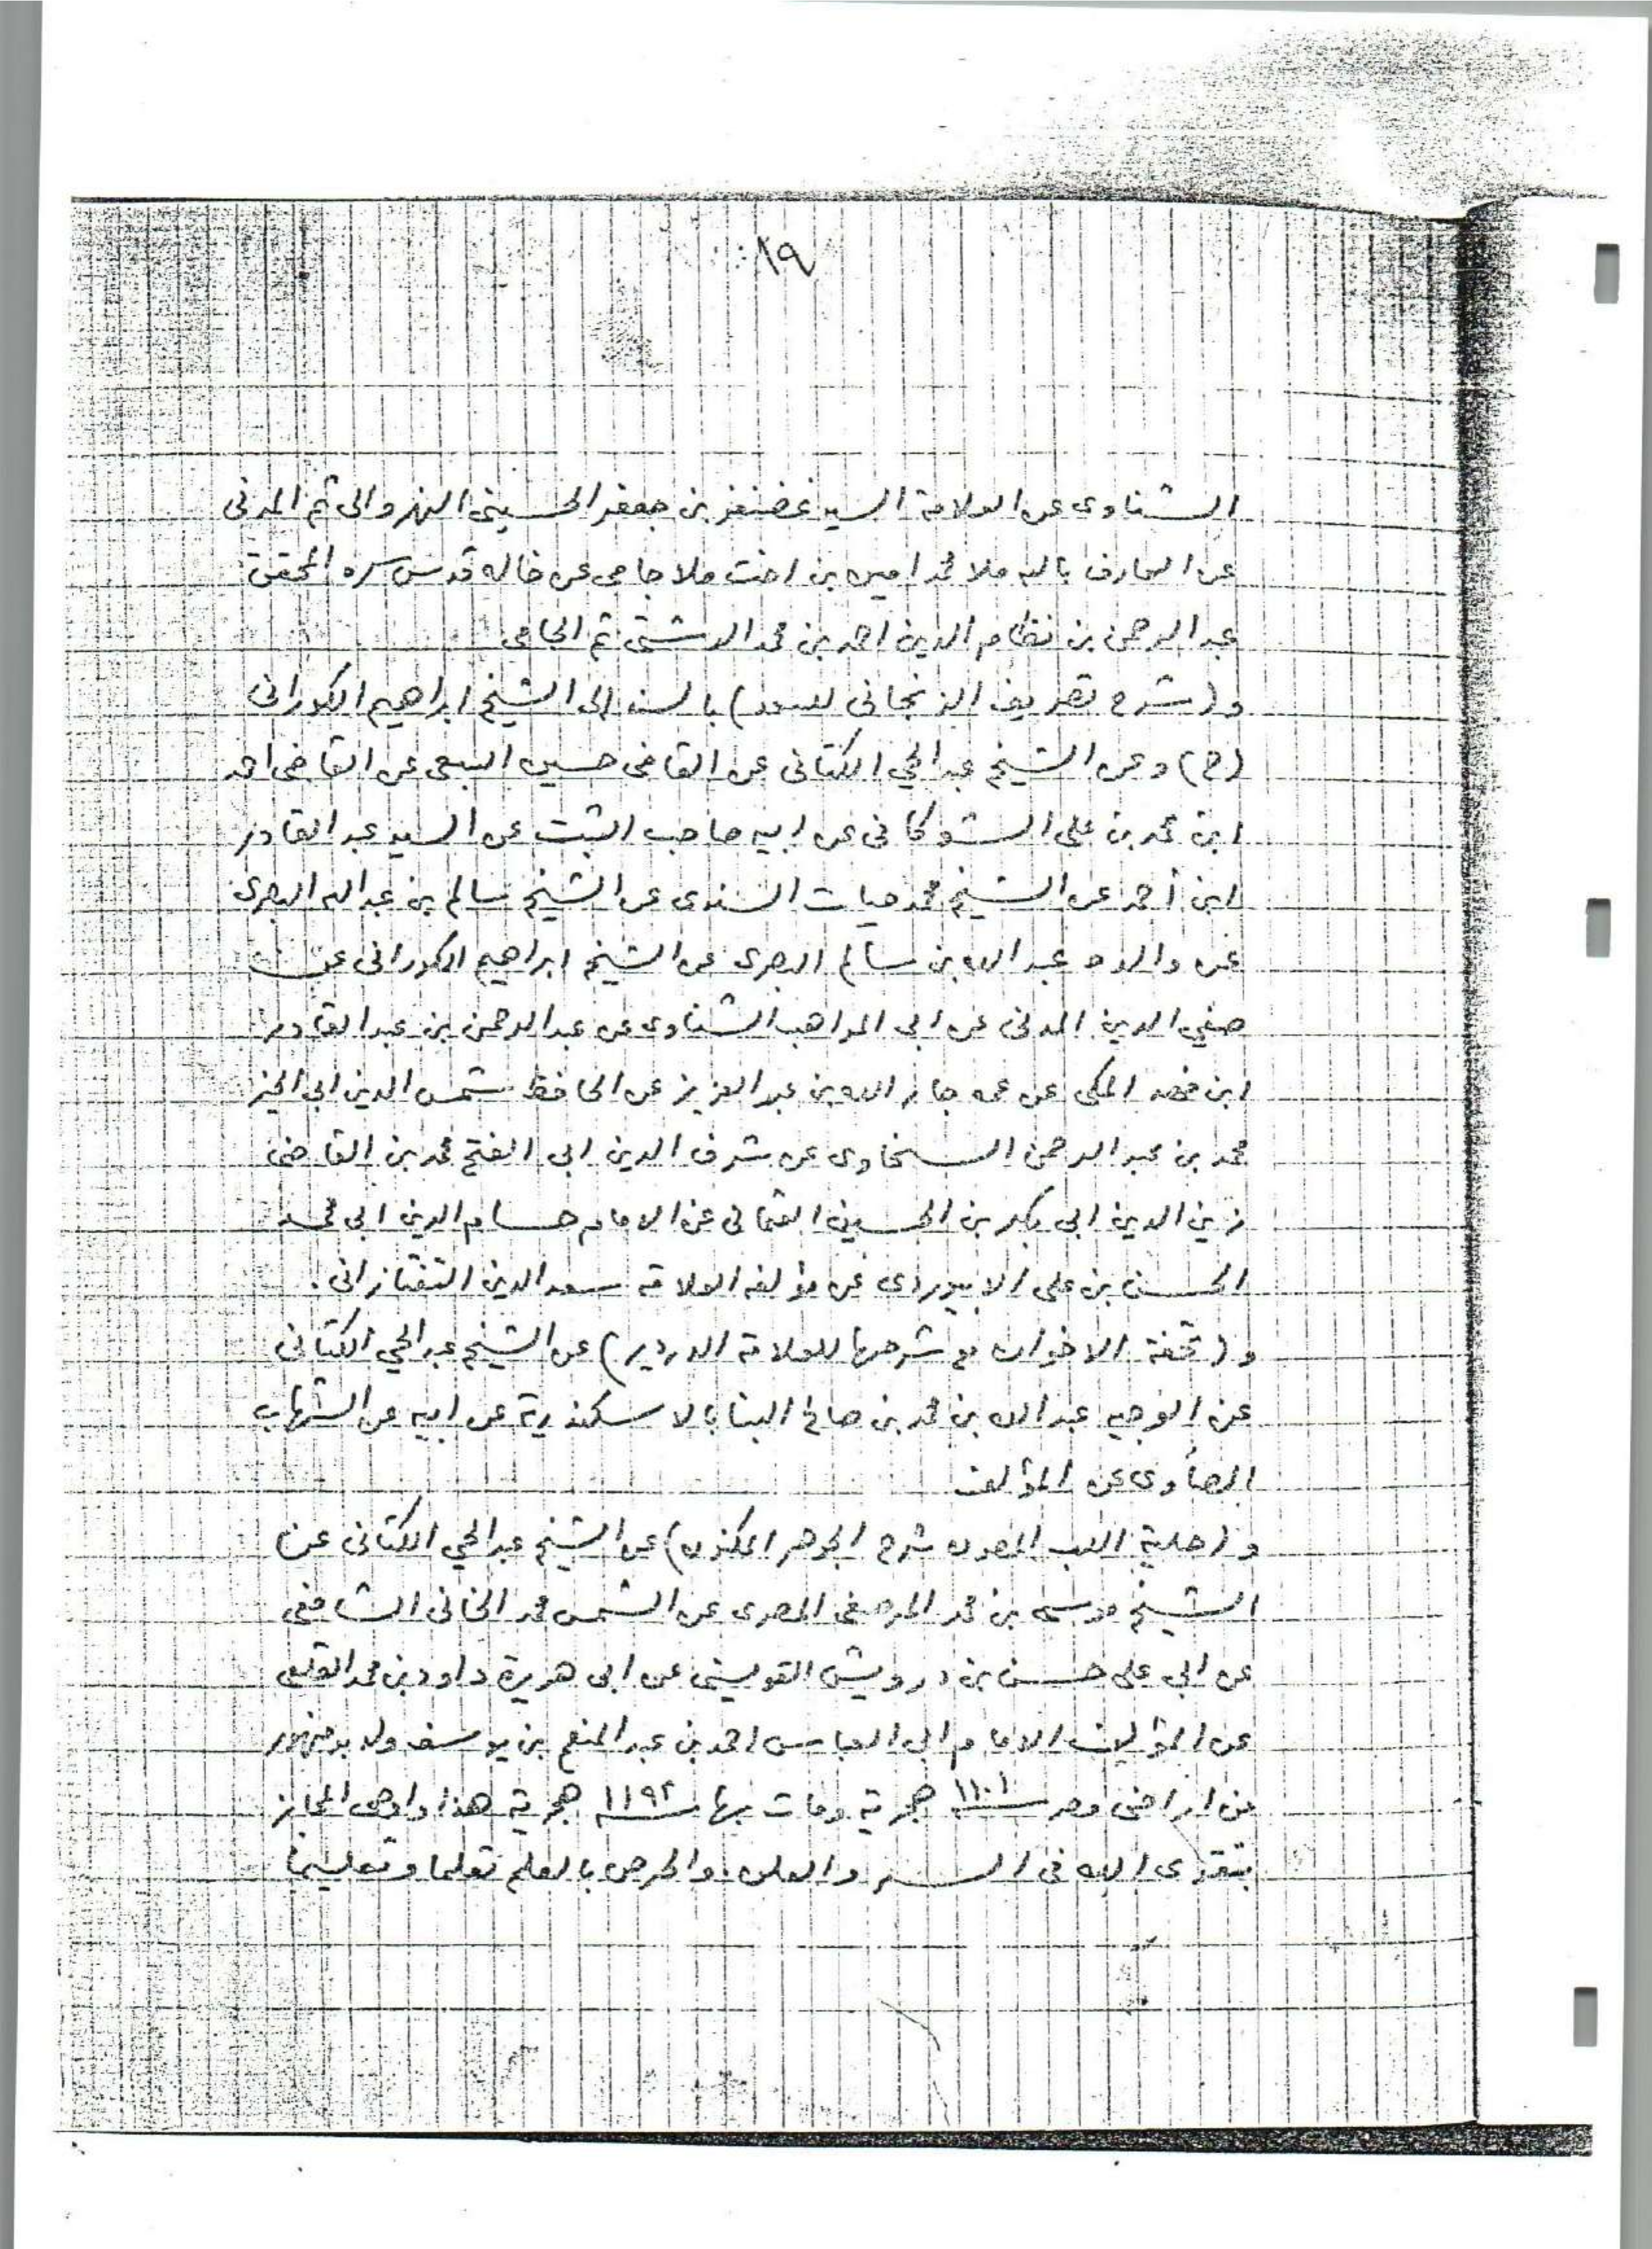 ١٩
الشناوى عن العلامة السيد غضنفر بن جعفر الحسينى النهروالى ثم المدنى
عن العارف بالله ملا محمد امين بن اخت ملا جامى عن خاله قدس سره المحقق
عبد الرحمن بن نظام الدين احمد بن محمد الدشتى ثم الجامى
و(شرح تصريف الزنجانى للسعد) بالسند الى الشيخ ابراهيم الكورانى
(ح) وعن الشيخ عبد الحي الكتانى عن القاضى حسين السبعى عن القاضى احمد
ابن محمد بن على الشوكانى عن ابيه صاحب الثبت عن السيد عبد القادر
ابن أحمد عن الشيخ محمد حيات السندى عن الشيخ سالم بن عبد الله البصرى
عن والده عبد الله بن سالم البصرى عن الشيخ ابراهيم الكورانى عن
صفي الدين المدنى عن ابى المواهب الشناوى عن عبد الرحمن بن عبد القادر
ابن فهد المكى عن عمه جار الله بن عبد العزيز عن الحافظ شمس الدين ابى الخير
محمد بن عبد الرحمن السخاوى عن شرف الدين ابى الفتح محمد بن القاضى
زين الدين ابى بكر بن الحسين العثمانى عن الامام حسام الدين ابى محمد
الحسن بن على الابيوردى عن مؤلفه العلامة سعد الدين التفتازانى.
و(تحفة الاخوان مع شرحها للعلامة الدردير) عن الشيخ عبد الحي الكتانى
عن الوجيه عبد الله بن محمد بن صالح البنا بالاسكندرية عن ابيه عن الشهاب
الصاوى عن المؤلف
و(حلية اللب المصون شرح الجوهر المكنون) عن الشيخ عبد الحي الكتانى عن
الشيخ موسى بن محمد المرصفى المصرى عن الشمس محمد الخانى الشافعى
عن ابي على حسن بن درويش القويسنى عن ابى هريرة داود بن محمد القلعى
عن المؤلف الامام ابى العباس احمد بن عبد المنعم بن يوسف ولد بدمنهور
من اراضى مصر سنة ١١٠١ هجرية ومات بها سنة ١١٩٢ هجرية هذا واوصى المجاز
بتقوى الله فى السر والعلن. والحرص بالعلم تعلما وتعليما